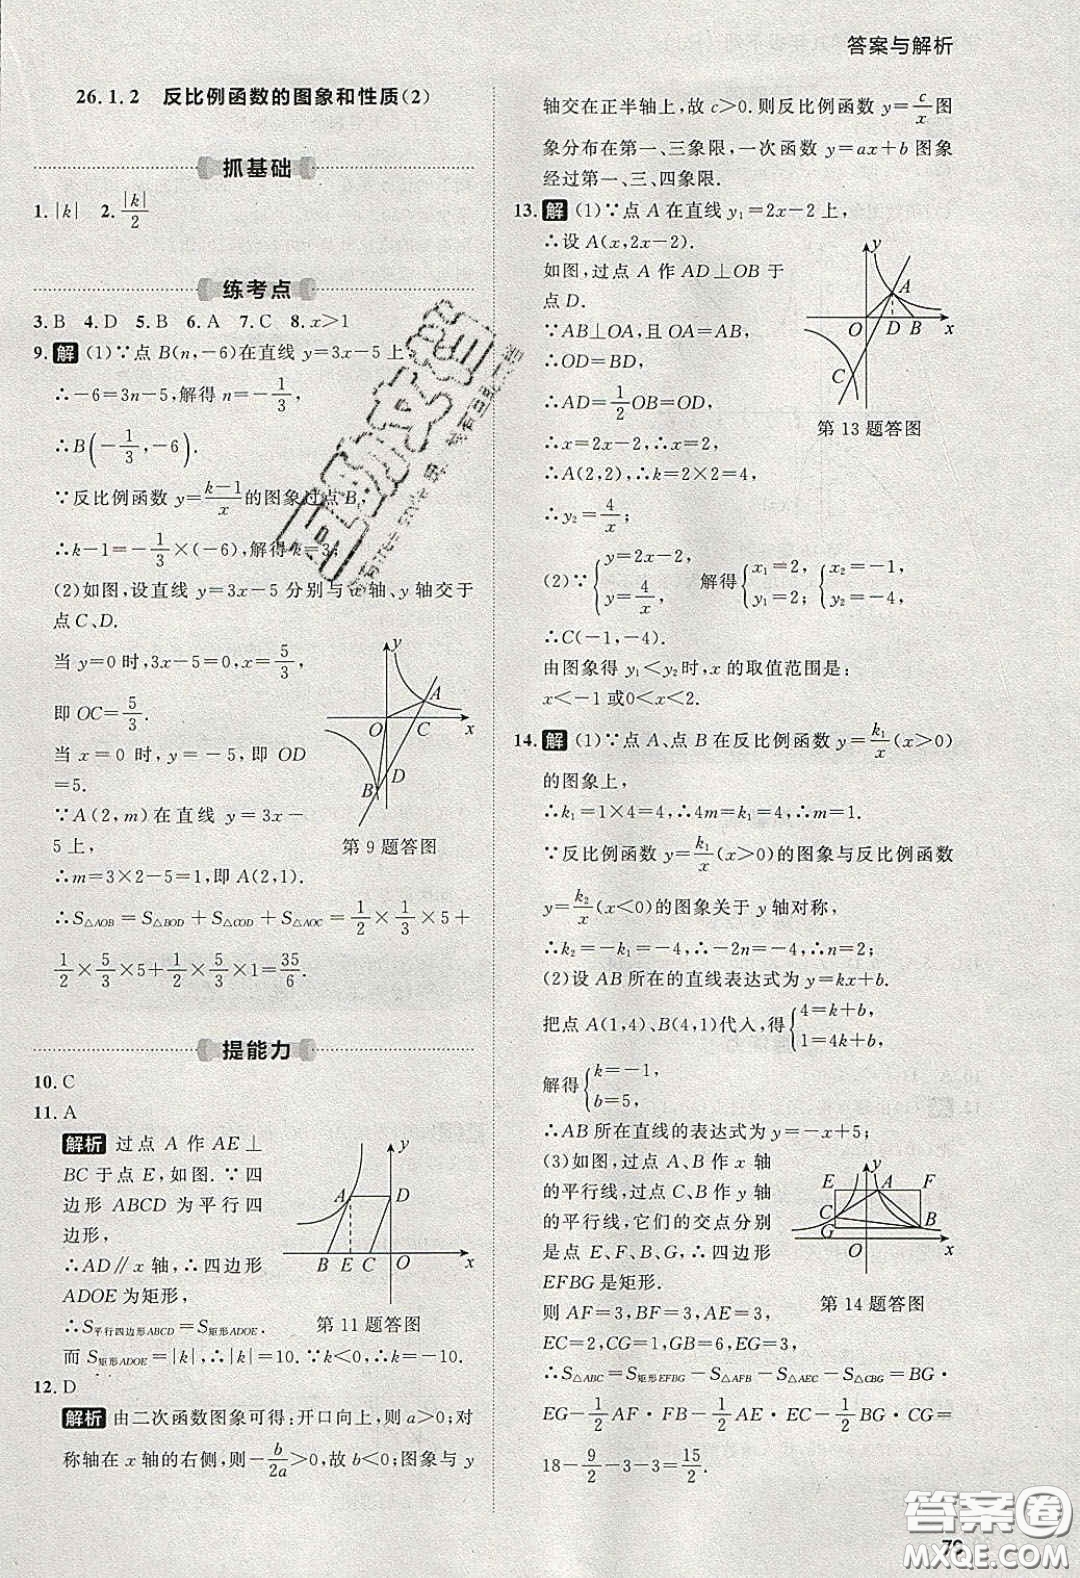 答案与解析
26.1.2 反比例函数的图象和性质(2)
抓基础
1. |k| 2. |k|/2
练考点
3. B 4. D 5. B 6. A 7. C 8. x>1
9. 解 (1)∵点 B(n,-6)在直线 y=3x-5上,
∴-6=3n-5,解得 n=-1/3,
∴B(-1/3,-6).
∵反比例函数 y=(k-1)/x 的图象过点B,
∴k-1=-1/3×(-6),解得 k=3;
(2)如图,设直线 y=3x-5 分别与 x 轴、y 轴交于
点 C、D.
当 y=0 时,3x-5=0,x=5/3,
即 OC=5/3.
当 x=0 时,y=-5,即 OD
=5.
∵A(2,m)在直线 y=3x-
5上,
∴m=3×2-5=1,即A(2,1).
y A O C x D B
第9题答图
∴S△AOB=S△BOD+S△COD+S△AOC=1/2×1/3×5+
1/2×5/3×5+1/2×5/3×1=35/6.
提能力
10. C
11. A
解析 过点 A 作 AE⊥
BC 于点 E,如图.∵四
边形 ABCD 为平行四
边形,
∴AD∥x 轴,∴四边形
ADOE 为矩形,
y A D B E C O x
第11题答图
∴S平行四边形ABCD=S矩形ADOE.
而 S矩形ADOE=|k|,∴|k|=10.∵k<0,∴k=-10.
12. D
解析 由二次函数图象可得:开口向上,则 a>0;对
称轴在 x 轴的右侧,则-b/2a>0,故 b<0;图象与 y
轴交在正半轴上,故 c>0.则反比例函数 y=c/x 图
象分布在第一、三象限,一次函数 y=ax+b 图象
经过第一、三、四象限.
13. 解 (1)∵点 A 在直线 y₁=2x-2上,
∴设 A(x,2x-2).
如图,过点 A 作 AD⊥OB 于
点 D.
∵AB⊥OA,且 OA=AB,
∴OD=BD,
∴AD=1/2OB=OD,
∴x=2x-2,∴x=2,
∴A(2,2),∴k=2×2=4,
∴y₂=4/x;
y A O D B x C
第13题答图
(2)∵{y=2x-2, y=4/x, 解得{x₁=2, y₁=2; {x₂=-1, y₂=-4,
∴C(-1,-4).
由图象得 y₁<y₂时,x 的取值范围是:
x<-1 或0<x<2.
14. 解 (1)∵点 A、点 B 在反比例函数 y=k₁/x(x>0)
的图象上,
∴k₁=1×4=4,∴4m=k₁=4,∴m=1.
∵反比例函数 y=k₁/x(x>0)的图象与反比例函数
y=k₂/x(x<0)的图象关于 y 轴对称,
∴k₂=-k₁=-4,∴-2n=-4,∴n=2;
(2)设 AB 所在的直线表达式为 y=kx+b.
把点 A(1,4)、B(4,1)代入,得{4=k+b, 1=4k+b,
解得{k=-1, b=5,
∴AB 所在直线的表达式为 y=-x+5;
(3)如图,过点 A、B 作 x 轴
的平行线,过点 C、B 作 y 轴
的平行线,它们的交点分别
是点 E、F、B、G.∴四边形
EFBG 是矩形.
y E A F C G B O x
第14题答图
则 AF=3,BF=3,AE=3,
EC=2,CG=1,GB=6,EG=3,
∴S△ABC=S矩形EFBG-S△AFB-S△AEC-S△CBG=BG·
EG-1/2AF·FB-1/2AE·EC-1/2BG·CG=
18-9/2-3-3=15/2.
答案圈
MXQE.COM